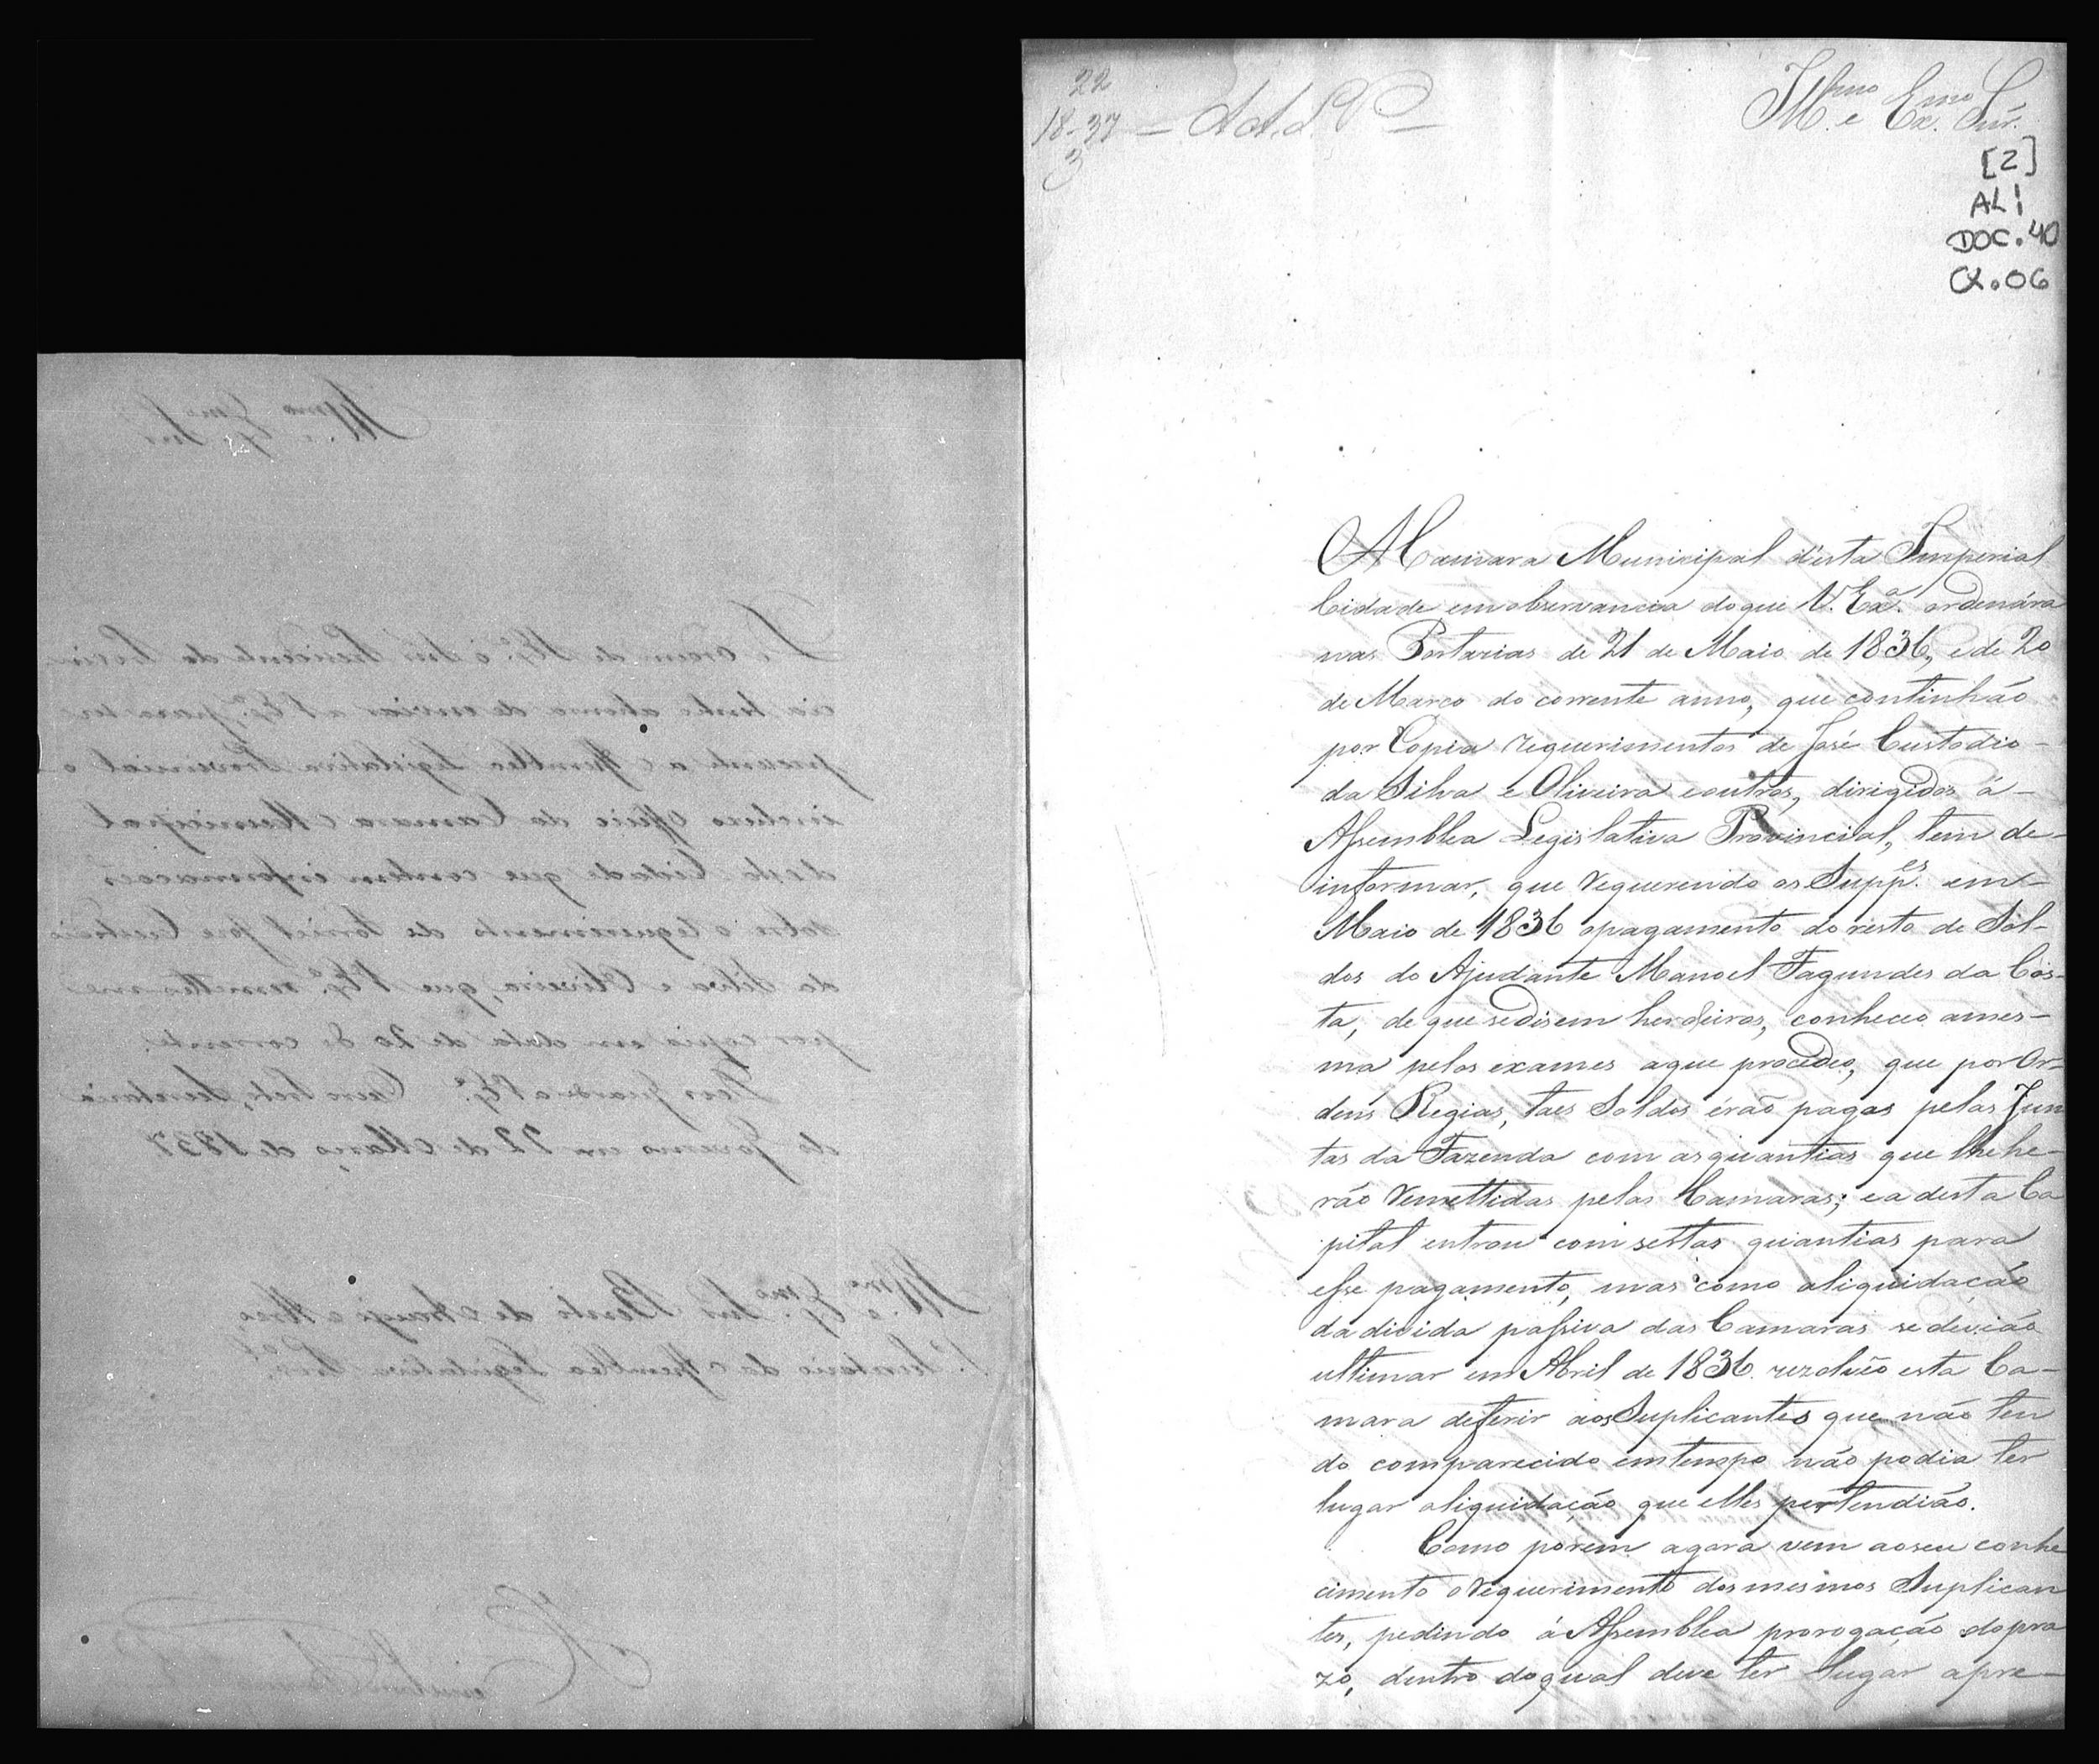 Ill.mo e Ex.mo Snr.
De ordem de S. Ex.ª o Snr. Presidente da Provin
cia tenho a honra de enviar a V. Ex.ª para ser
presente a Assemblea Legislativa Provincial o
incluso officio da Camara Municipal
desta Cidade que contem informacões
sobre o requerimento do José Custodio
da Silva e Oliveira, que V. Ex.ª remetteo-me
por copia em data de 20 do corrente.
Deos guarde a V. Ex.ª Ouro Preto, Secretaria
do Governo em 22 de Março de 1837
Ill.mo e Ex.mo Snr. Bento de Araujo e Abreo,
1.º Secretario da Assemblea Legislativa Prov.al
22
18-37
3
Ill.mo e Ex.mo Snr.
[2]
AL!
DOC. 40
CX. 06
A Camara Municipal d'esta Imperial
Cidade em observancia do que V. Ex.ª ordenára
nas Portarias de 21 de Maio de 1836, e de 20
de Marco do corrente anno, que continhão
por Copia requerimentos de José Custodio
da Silva e Oliveira e outros, dirigidos á
Assemblea Legislativa Provincial, tem de
informar, que requerendo os Supp.es em
Maio de 1836 o pagamento do resto de Sol-
dos do Ajudante Manoel Fagundes da Cos-
ta, de que se disem herdeiros, conheceo a mes-
ma pelos exames a que procedeo, que por Or-
dens Regias, taes Soldos érão pagos pelas Jun
tas da Fazenda com as quantias que lhe he-
rão remettidas pelas Camaras; e a desta Ca
pital entrou com sertas quantias para
esse pagamento, mas como a liquidação
da divida passiva das Camaras se devião
ultimar em Abril de 1836 rezolveo esta Ca-
mara deferir aos Suplicantes que não ten
do comparecido em tempo não podia ter
lugar a liquidação que elles pertendião.
Como porem agora vem ao seu conhe
cimento o requerimento dos mesmos Suplican
tes, pedindo á Assemblea prorogação do pra
zo, dentro do qual deve ter lugar a pre-